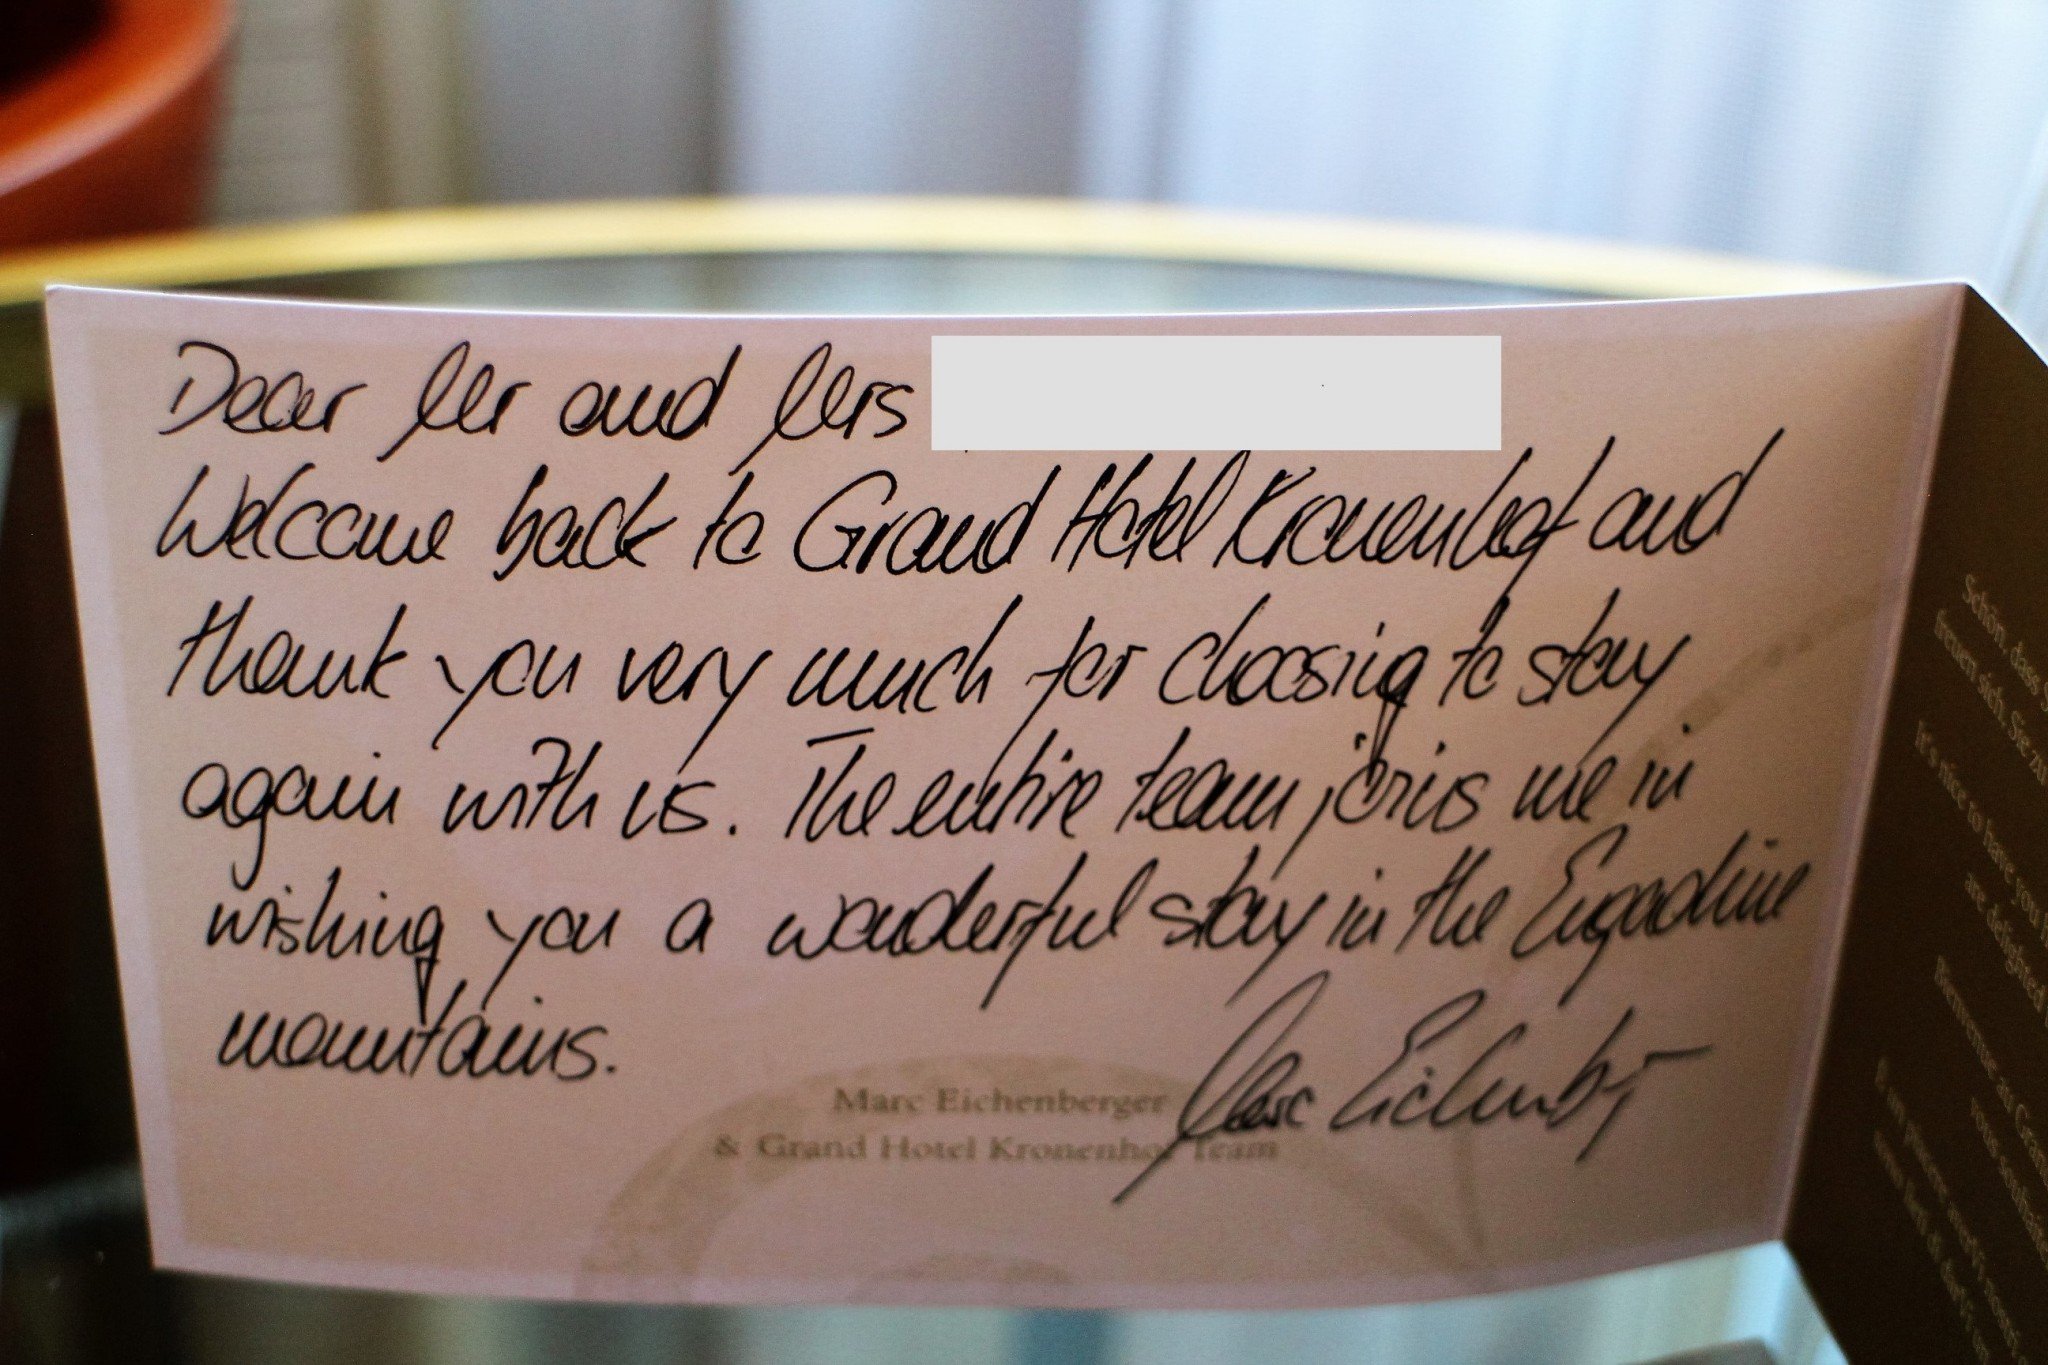 Dear Mr and Mrs
Welcome back to Grand Hotel Kronenhof and
thank you very much for choosing to stay
again with us. The entire team joins me in
wishing you a wonderful stay in the Engadine
mountains.
Marc Eichenberger
Marc Eichenberger
& Grand Hotel Kronenhof Team
Schön, dass
freuen sich, Sie
It's nice to have you
are delighted